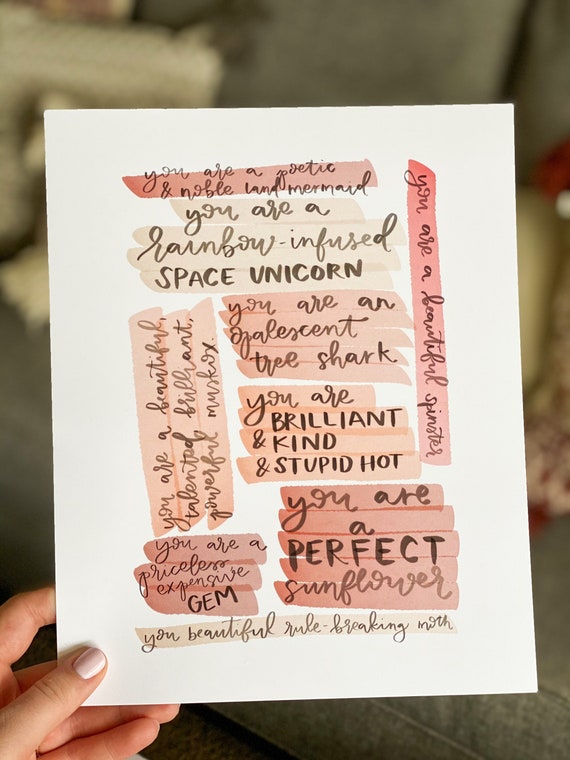 you are a poetic
& noble land mermaid
you are a
rainbow-infused
SPACE UNICORN
you are a beautiful spinster
you are an
opalescent
tree shark
you are a beautiful,
talented, brilliant,
powerful muskox.
you are
BRILLIANT
& KIND
& STUPID HOT
you are
a
PERFECT
sunflower
you are a
priceless
expensive
GEM
you beautiful rule-breaking moth